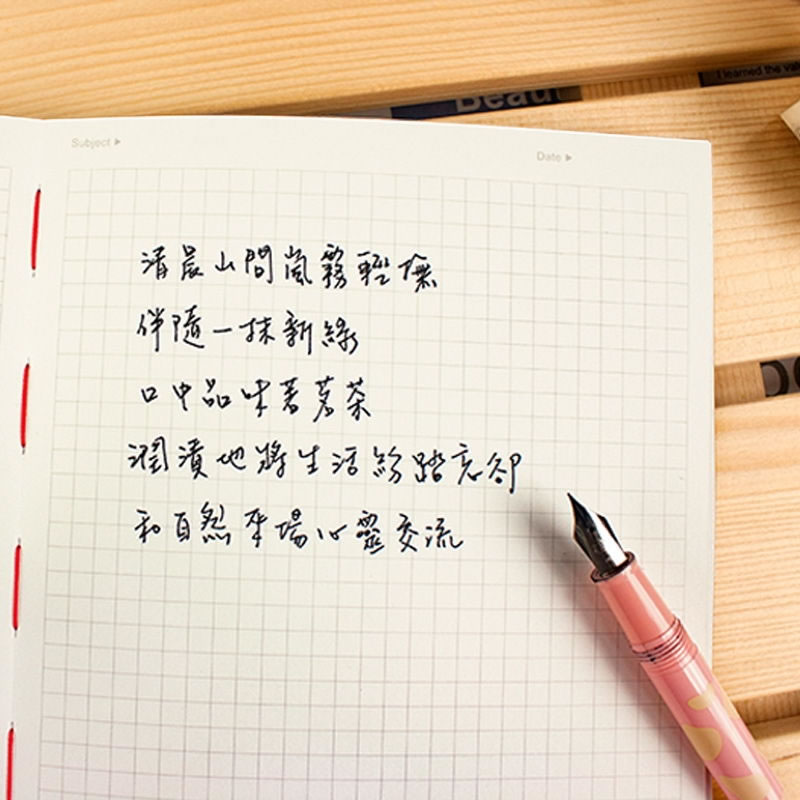 I learned the val
Beau
Subject ▶
Date ▶
清晨山間嵐霧輕撫
伴隨一抹新綠
口中品味著茗茶
潤漬地將生活紛踏忘卻
和自然來場心靈交流